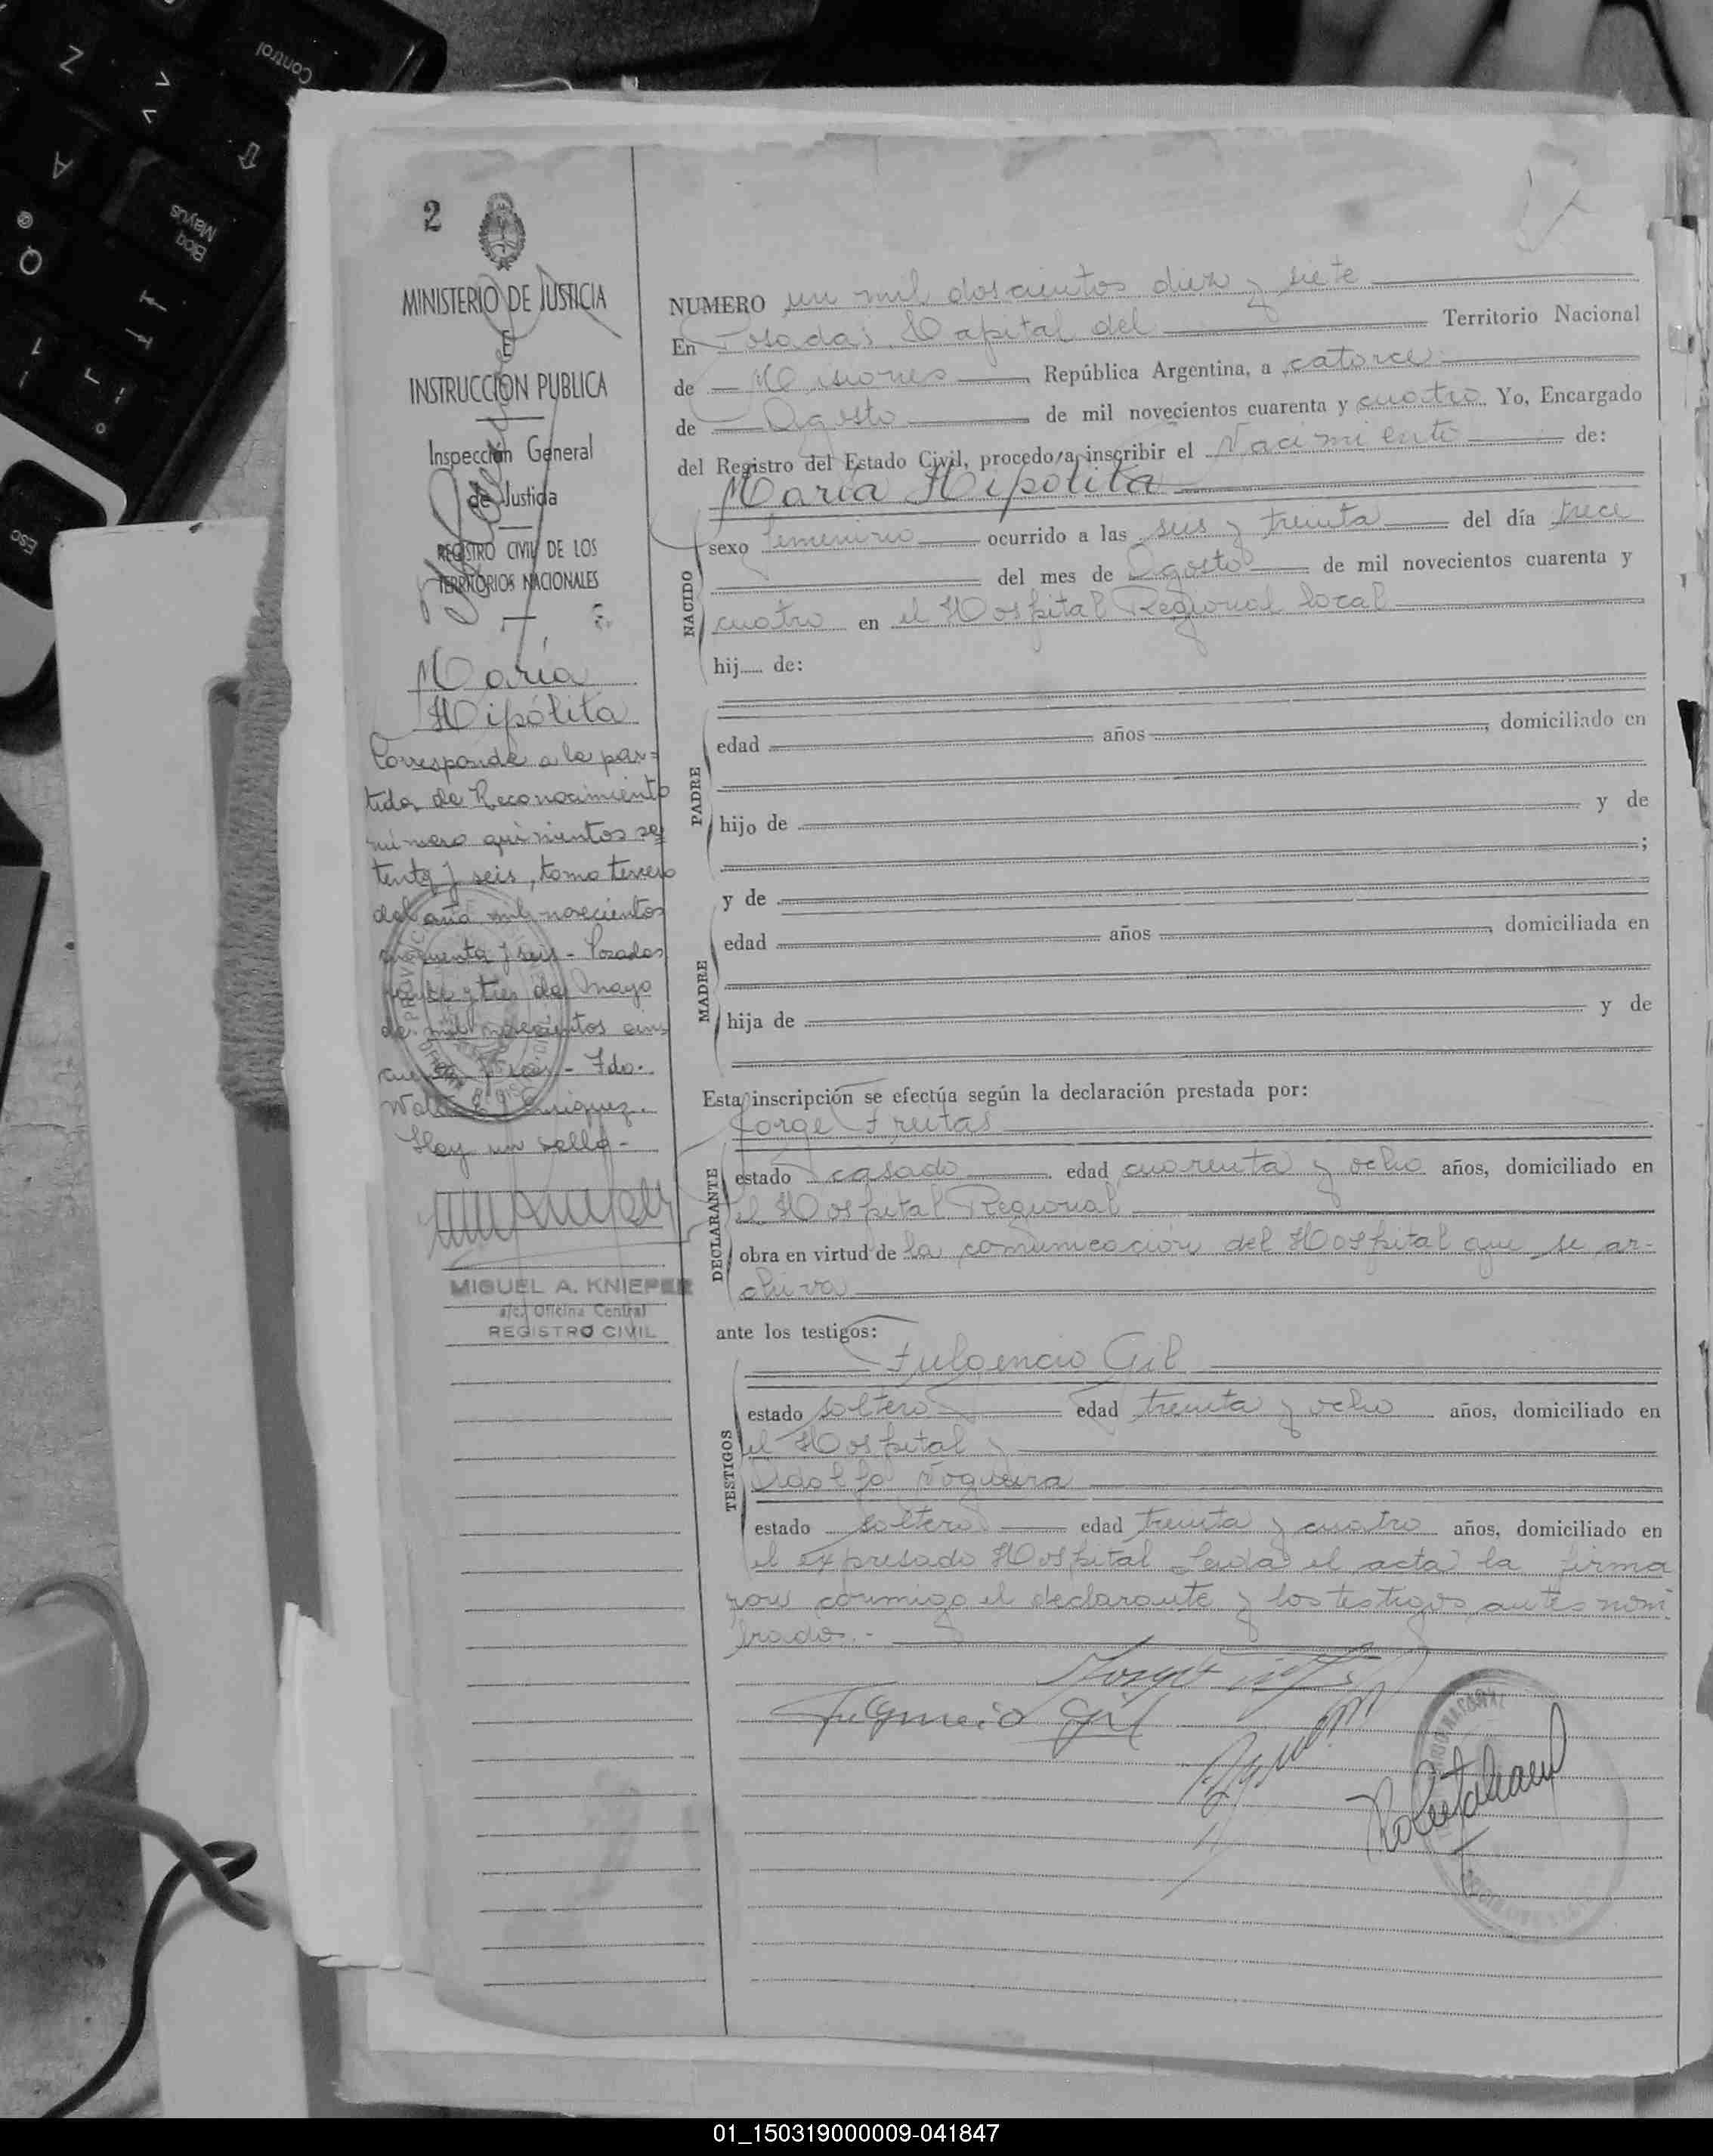 Control
Z
A
Bloq
Mayus
Q
@
1
Esc
2
MINISTERIO DE JUSTICIA
E
INSTRUCCION PUBLICA
Inspección General
de Justicia
REGISTRO CIVIL DE LOS
TERRITORIOS NACIONALES
María
Hipólita
Corresponde a la par=
tida de Reconocimiento
número quinientos se
tenta y seis, tomo tercero
del año mil novecientos
cincuenta y seis - Posadas
veinte y tres de Mayo
de mil novecientos cin
cuenta y seis - Fdo.
Enriquez.
Hay un sello -
MIGUEL A. KNIEPER
a/c. Oficina Central
REGISTRO CIVIL
NUMERO un mil doscientos diez y siete
En Posadas, Capital del Territorio Nacional
de Misiones República Argentina, a catorce
de Agosto de mil novecientos cuarenta y cuatro Yo, Encargado
del Registro del Estado Civil, procedo a inscribir el Nacimiento de:
María Hipólita
NACIDO
sexo femenino ocurrido a las seis y treinta del día trece
del mes de Agosto de mil novecientos cuarenta y
cuatro en el Hospital Regional local
hij..... de:
PADRE
edad años , domiciliado en
hijo de y de
;
MADRE
y de
edad años , domiciliada en
hija de y de
Esta inscripción se efectúa según la declaración prestada por:
DECLARANTE
Jorge Freitas
estado casado edad cuarenta y ocho años, domiciliado en
el Hospital Regional
obra en virtud de la comunicación del Hospital que se ar-
chiva
ante los testigos:
TESTIGOS
Fulgencio Gil
estado soltero edad treinta y ocho años, domiciliado en
el Hospital y
Adolfo Nogueira
estado soltero edad treinta y cuatro años, domiciliado en
el expresado Hospital. Leida el acta la firma
ron conmigo el declarante y los testigos antes nom
brados.-
Fulgencio Gil
01_150319000009-041847